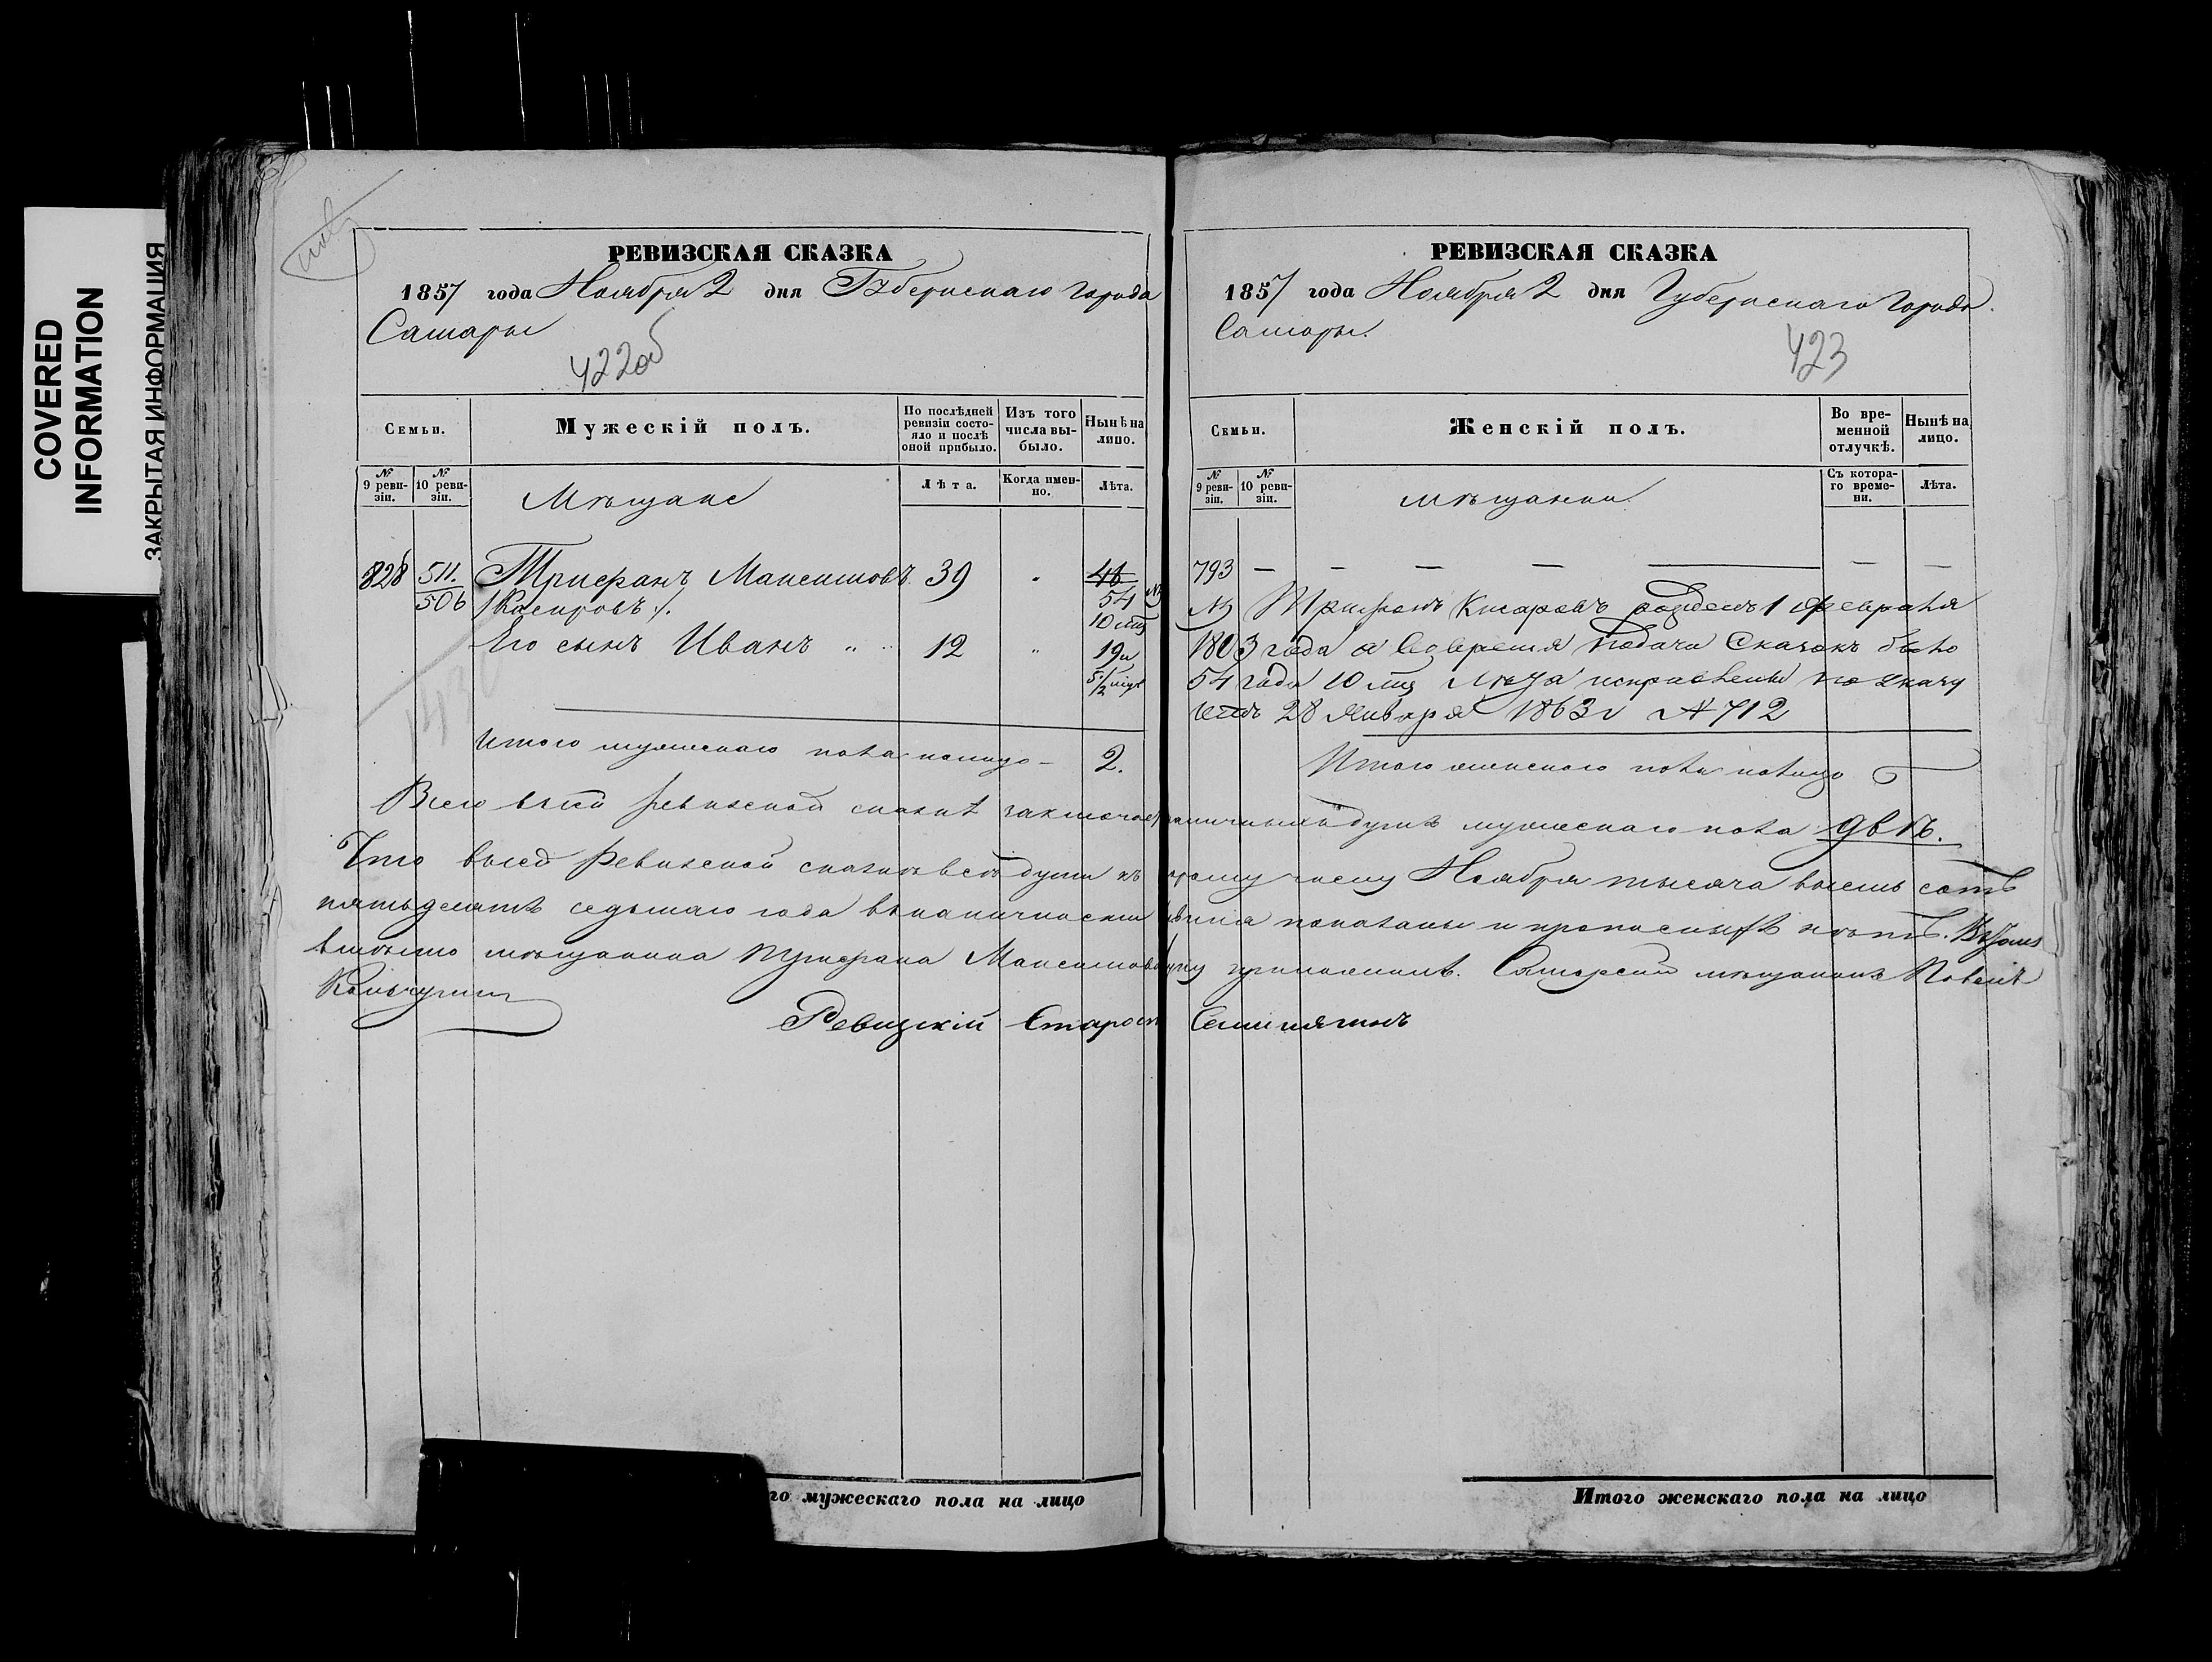 COVERED
INFORMATION
ЗАКРЫТАЯ ИНФОРМАЦИЯ
РЕВИЗСКАЯ СКАЗКА
1857 года Ноября 2 дня Губернскаго города
Самары
422об
Семьи.
Мужескій полъ.
По послѣдней ревизіи состояло и послѣ оной прибыло.
Изъ того числа выбыло.
Нынѣ на лицо.
№ 9 ревизіи.
№ 10 ревизіи.
Мѣщане
Лѣта.
Когда именно.
Лѣта.
828 511. Трифанъ Максимовъ 39 " 48
506 54
10 мц
Его сынъ Иванъ " 12 " 19 и
5 1/2
Итого мужескаго пола налицо - 2.
Всего въ сей ревизской сказкѣ
Что въ сей ревизской сказкѣ всѣ души къ
пятьдесятъ седьмаго года въ наличности
вмѣсто мѣщанина Трифана Максимова
Ревизкій Старос
го мужескаго пола на лицо
РЕВИЗСКАЯ СКАЗКА
1857 года Ноября 2 дня Губернскаго города
Самары.
423
Семьи.
Женскій полъ.
Во временной отлучкѣ.
Нынѣ на лицо.
№ 9 ревизіи.
№ 10 ревизіи.
мѣщанки
Съ котораго времени.
Лѣта.
793 — — — — — —
Трифонъ Кисаровъ рожденъ 1 февраля
1803 года а во время подачи Сказокъ было
54 года 10 мц лѣта исправлены по указу
28 Января 1863 г № 712
Итого женскаго пола налицо
душъ мужескаго пола двѣ.
Ноября тысяча восемь сотъ
показаны и прописныхъ нѣтъ.
руку приложилъ. Самарский мѣщанинъ Павелъ
Итого женскаго пола на лицо